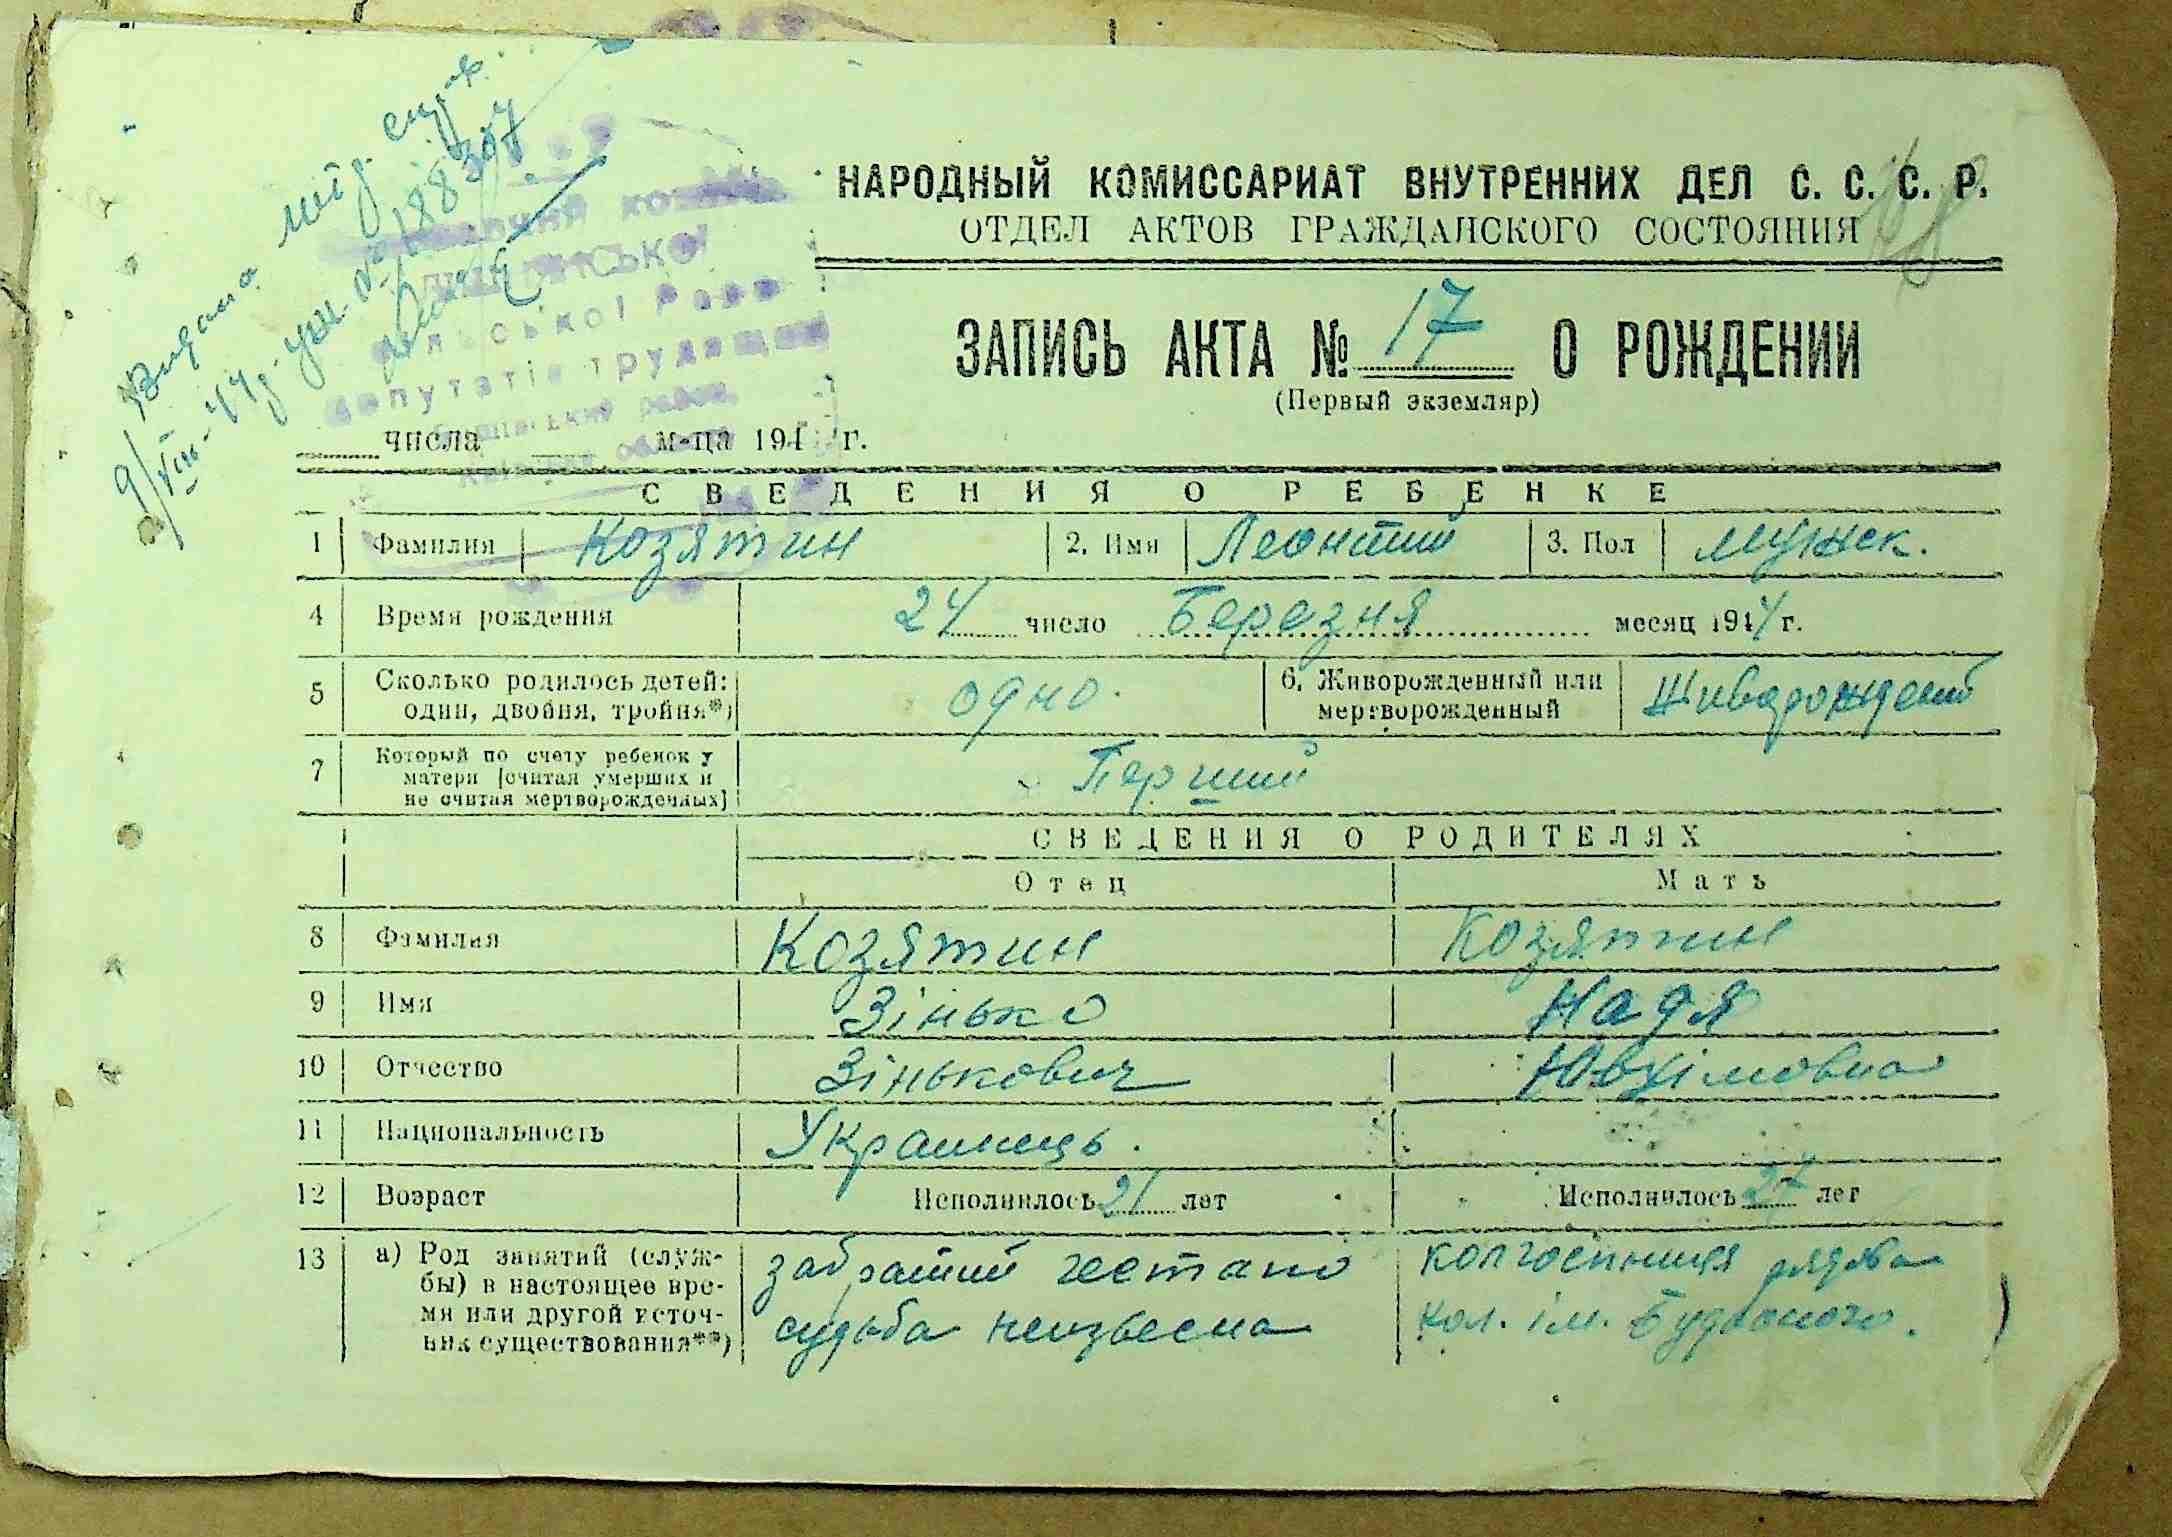 Видано
НАРОДНЫЙ КОМИССАРИАТ ВНУТРЕННИХ ДЕЛ С. С. С. Р.
ОТДЕЛ АКТОВ ГРАЖДАНСКОГО СОСТОЯНИЯ
ЗАПИСЬ АКТА № 17 О РОЖДЕНИИ
(Первый экземляр)
сільської Ради
депутатів трудящих
числа м-ца 194 г.
СВЕДЕНИЯ О РЕБЕНКЕ
1 Фамилия Козятин 2. Имя Леонтий 3. Пол мужск.
4 Время рождения 24 число Березня месяц 1944 г.
5 Сколько родилось детей: один, двойня, тройня*) одно. 6. Живорожденный или мертворожденный Живорожденый
7 Который по счету ребенок у матери [считая умерших и не считая мертворожденных] Перший
СВЕДЕНИЯ О РОДИТЕЛЯХ
Отец Мать
8 Фамилия Козятин Козятин
9 Имя Зінько Надя
10 Отчество Зінькович Ювхімовна
11 Национальность Украинець.
12 Возраст Исполнилось 21 лет Исполнилось лет
13 а) Род занятий (служ- забратий гестапо колгоспниця рядова
бы) в настоящее вре-
мя или другой источ- судьба неизвесна кол. ім. Будьоного.
ник существования**)